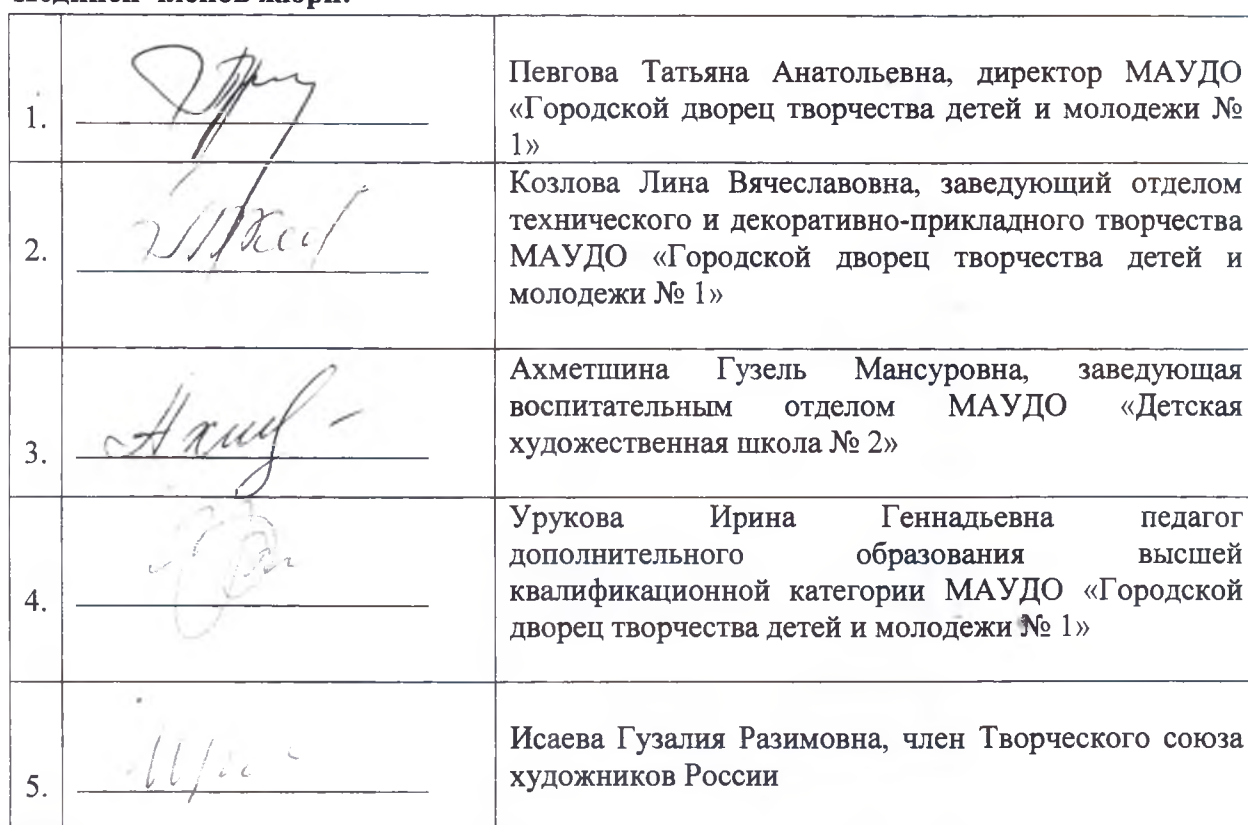 Подписи членов жюри:
1.
Певгова Татьяна Анатольевна, директор МАУДО
«Городской дворец творчества детей и молодежи №
1»
2.
Козлова Лина Вячеславовна, заведующий отделом
технического и декоративно-прикладного творчества
МАУДО «Городской дворец творчества детей и
молодежи № 1»
3.
Ахметшина Гузель Мансуровна, заведующая
воспитательным отделом МАУДО «Детская
художественная школа № 2»
4.
Урукова Ирина Геннадьевна педагог
дополнительного образования высшей
квалификационной категории МАУДО «Городской
дворец творчества детей и молодежи № 1»
5.
Исаева Гузалия Разимовна, член Творческого союза
художников России